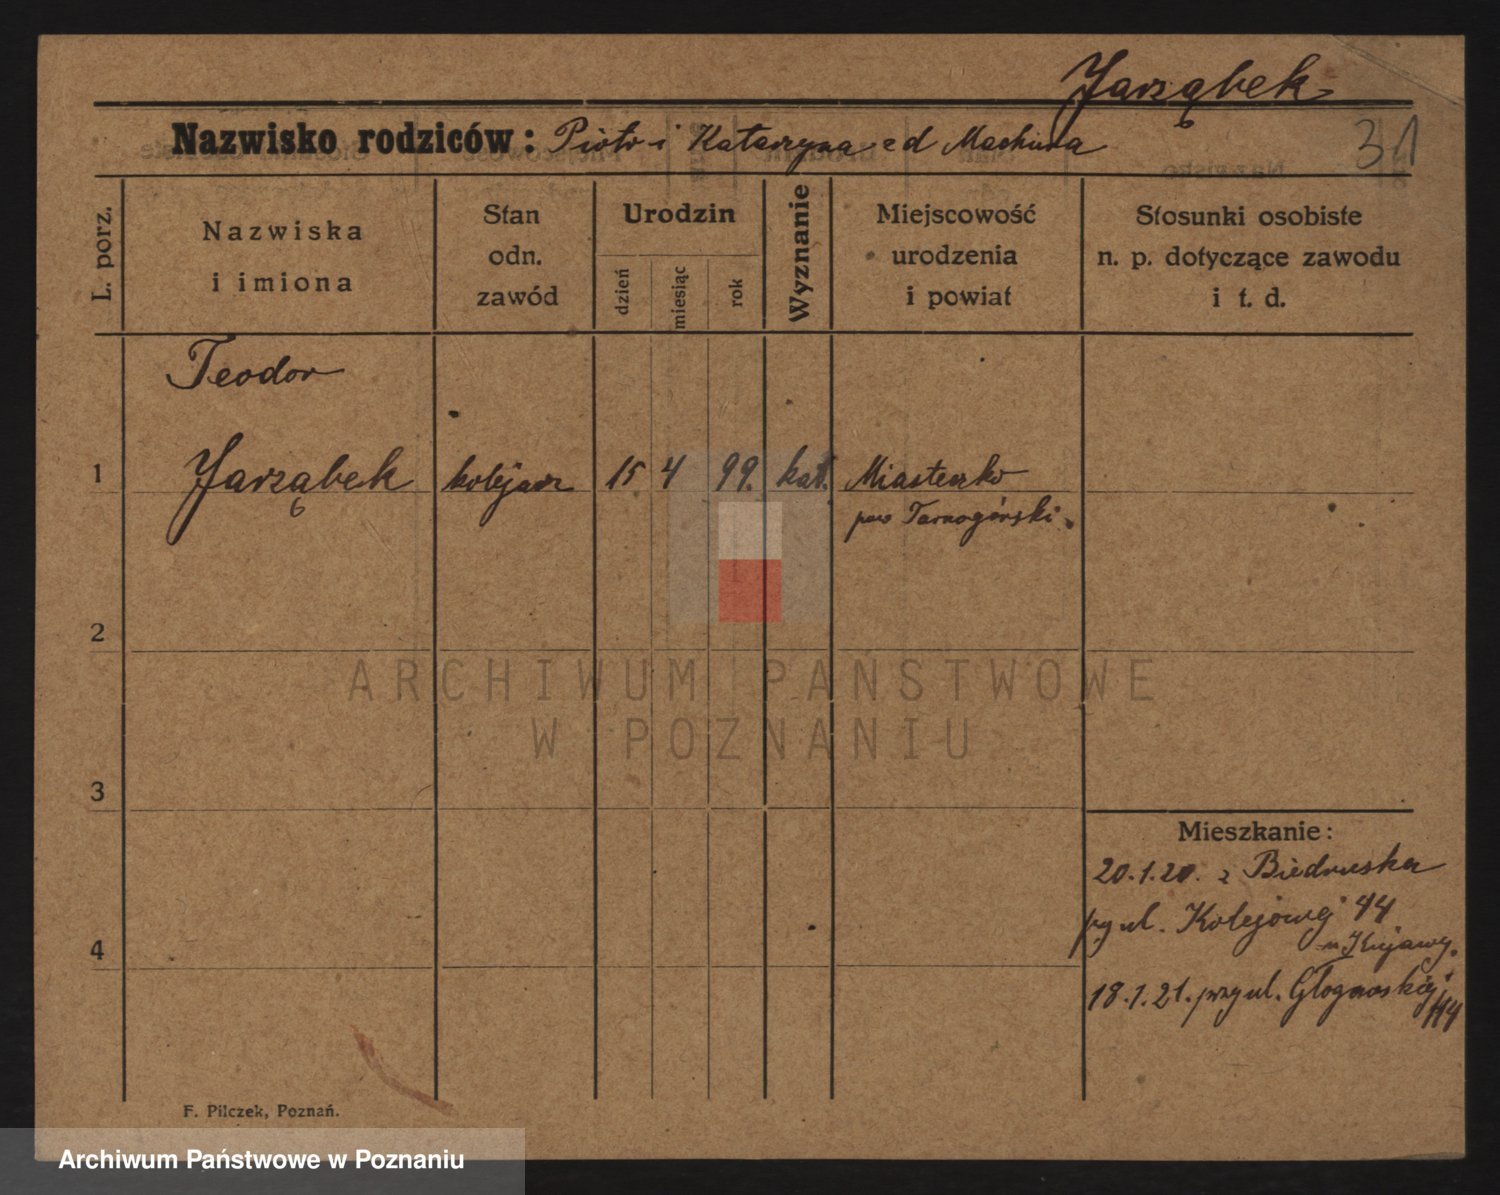 Jarząbek
Nazwisko rodziców: Piotr i Katarzyna z d Machura
31
L. porz.
Nazwiska
i imiona
Stan
odn.
zawód
Urodzin
dzień
miesiąc
rok
Wyznanie
Miejscowość
urodzenia
i powiat
Stosunki osobiste
n. p. dotyczące zawodu
i t. d.
Teodor
1 Jarząbek kolejarz 15 4 99. kat. Miasteczko
pow Tarnogórski.
2
ARCHIWUM PAŃSTWOWE
W POZNANIU
3
Mieszkanie:
20.1.20. z Biedruska
przy ul. Kolejowej 44
u Kujawy.
4
18.7.21. przy ul. Głogowskiej
114
F. Pilczek, Poznań.
Archiwum Państwowe w Poznaniu